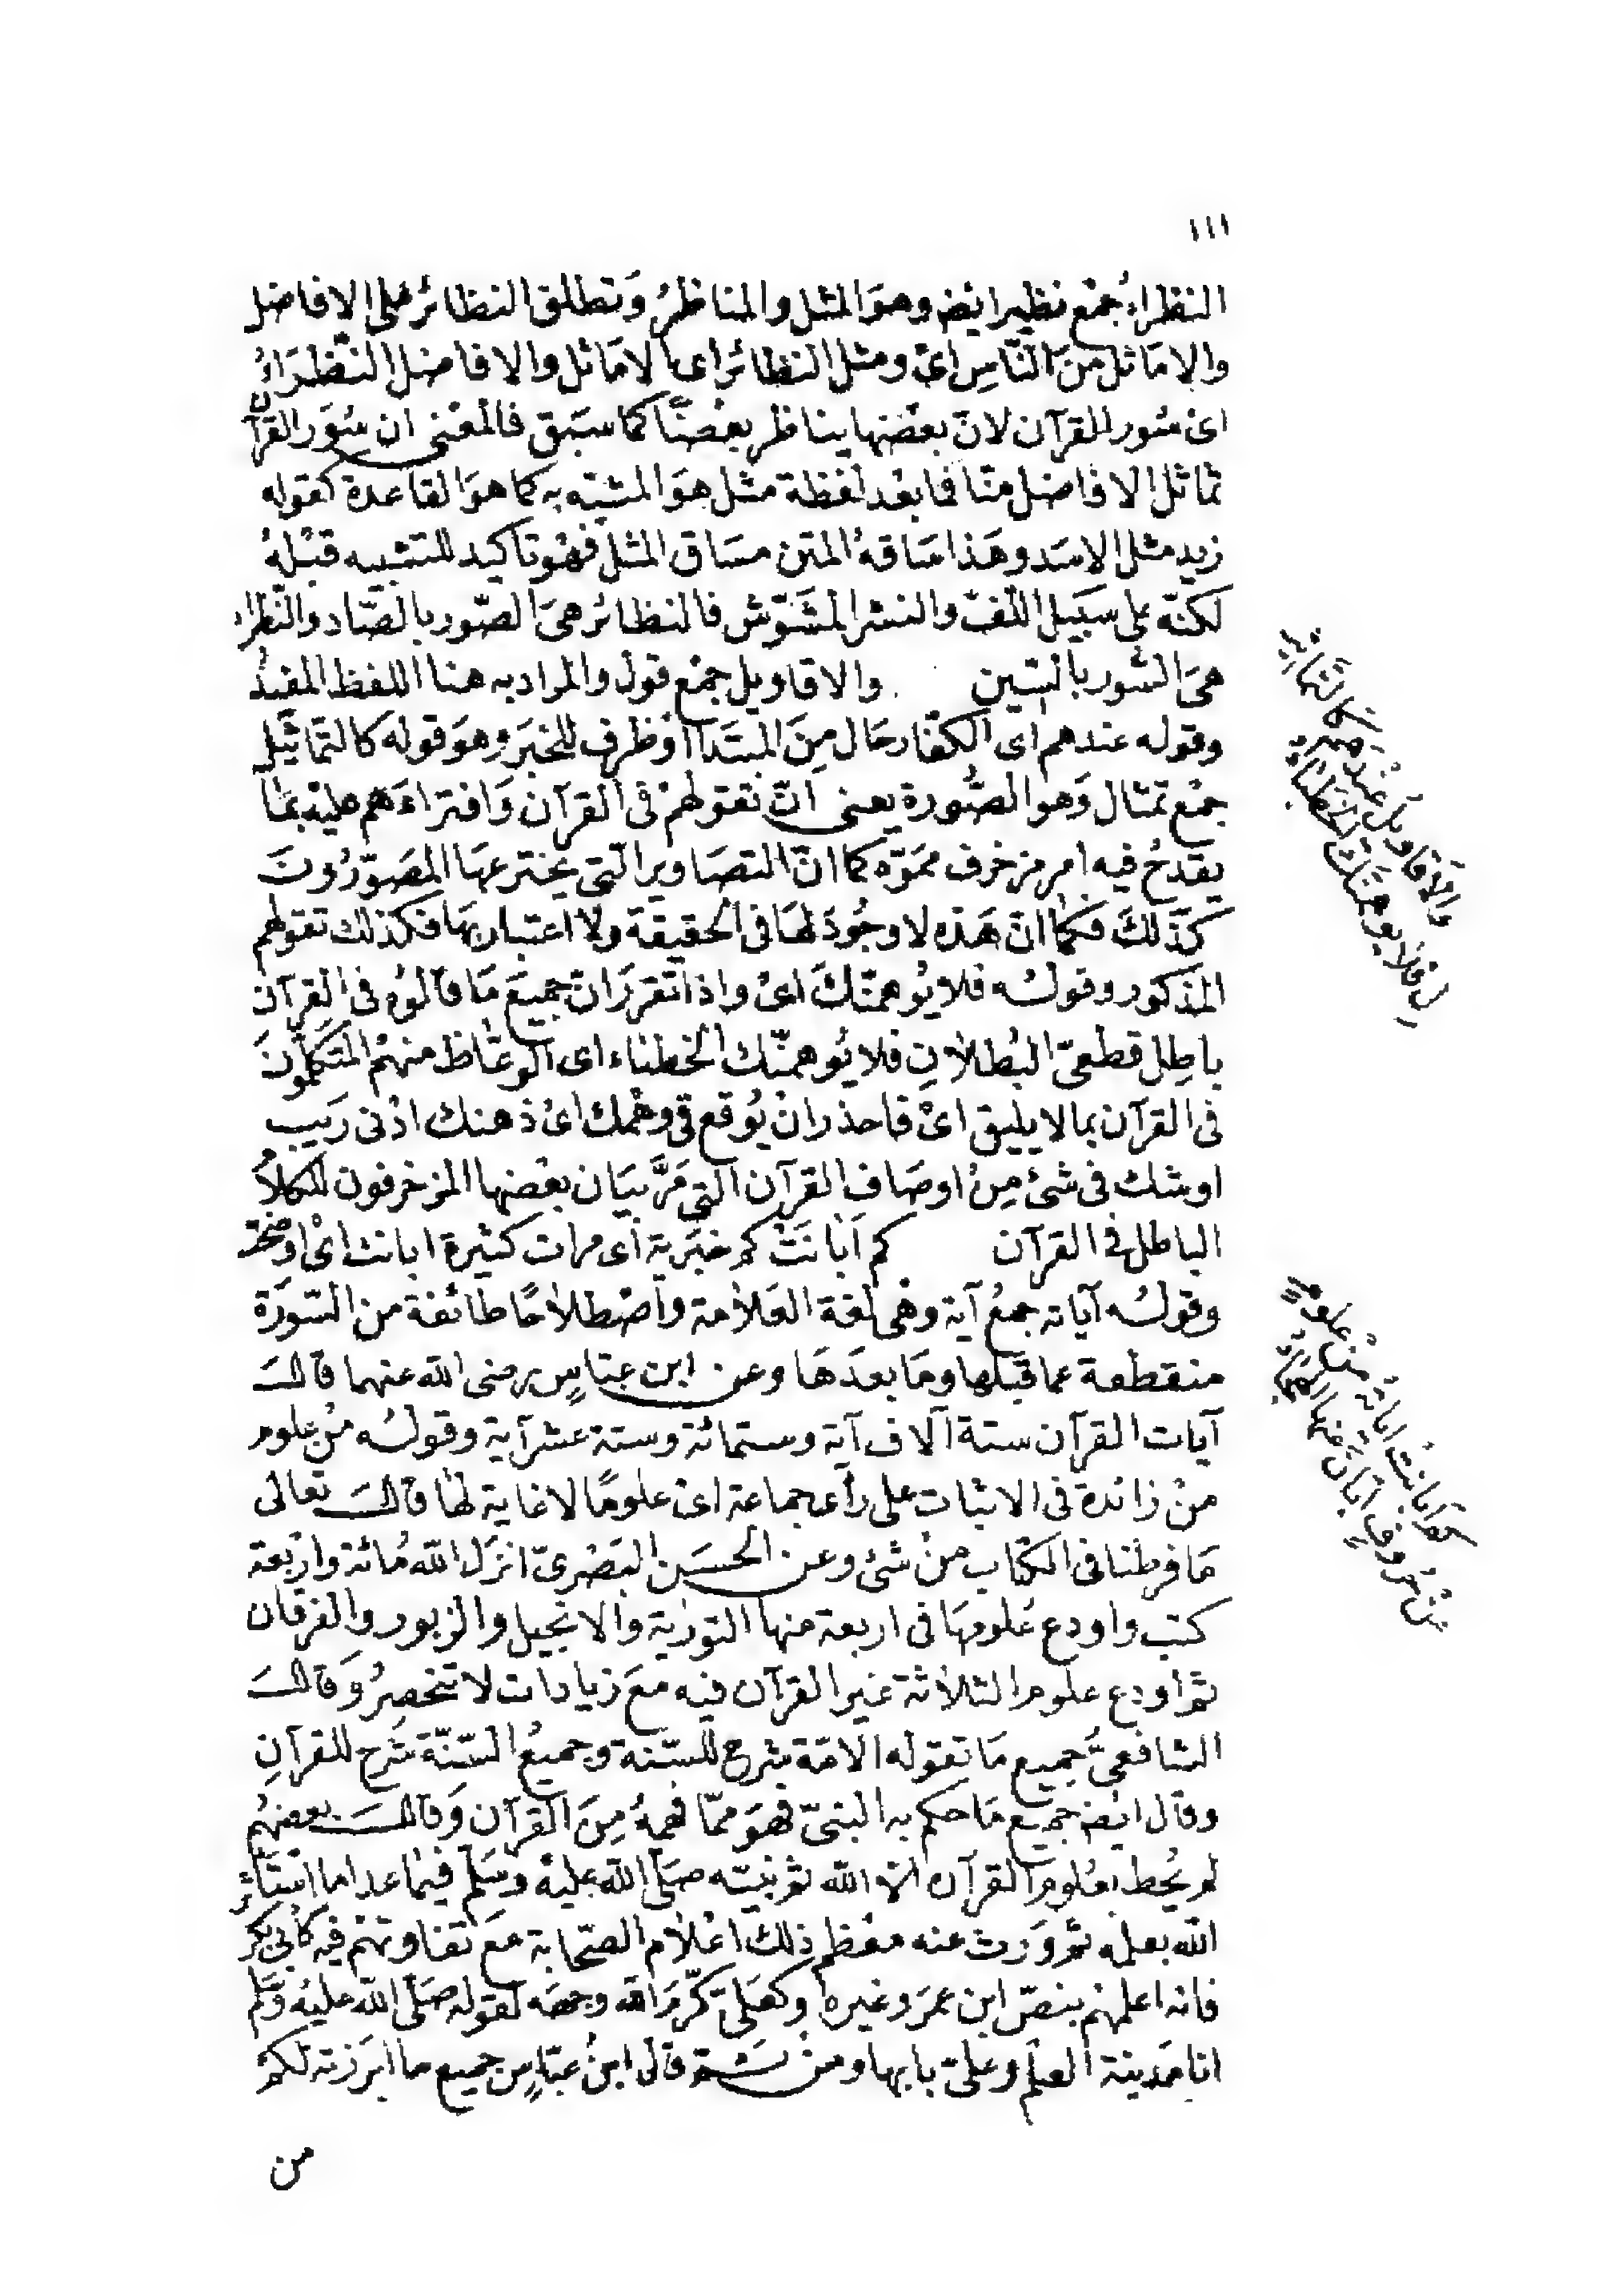 ١١١
النظراءُ جمْع نظير ايضً وهوَ المثل والمناظرُ وَتطلق النظائر على الافاضل
والاماثل منَ النَّاسِ اىْ ومثل النظائر اى الامَاثل والافاضل النّظرَاءُ
اىْ سُور القرآن لانّ بعْضَها يناظر بعْضًا كما سَبَق فالمعْنى ان سُوَر القرآن
تماثل الافاضل منّا فما بعْد لفظة مثل هوَ المشبّه به كما هوَ القاعدة كقوله
زيد مثل الاسَد وهَذا سَاقهُ المتن مسَاق المثل فهْو تاكيد للتشبيه قبْلهُ
لكنّه على سَبيل اللّفّ والنشر المشَوّش فالنظائر هىَ الصّور بالصّاد والنّظراء
هىَ السّور بالسّين والاقاويل جمْع قول والمراد به هنا اللفظ المفيدُ
وقوله عندهم اى الكفّار حَال مِنَ المبتَدأ اوْ ظرف للخبَر وهوَ قوله كالتّماثيْل
جمْع تمثال وَهو الصُّورة يعنى انّ تقولهمْ فى القرآن وَافتراءَهُم عليْه بمَا
يقدحُ فيه امر مزخرف مموّه كما انّ التصَاوير الّتى يخترعهَا المصَوّرُونَ
كذَلكَ فكما انّ هَذه لا وجُودَ لهَا فى الحقيقة ولا اعتبار بهَا فكذلك تقولهم
المذكور وقولُه فلا يُوهمنّكَ اىْ واذا تقررَ انّ جميعَ مَا قالوُه فى القرآن
باطِل قطعىّ البُطلانِ فلا يُوهمنّك الخطباء اى الوعّاظ منهمْ المتكلّمونَ
فى القرآن بما لا يليق اىْ فاحذر انْ يُوقع فى وهْمك اىْ ذهنك ادْنى رَيب
او شك فى شئ مِنْ اوصَاف القرآن التى مَرَّ بيَان بعْضها المزخرفون للكلام
الباطل فى القرآن كم اَبانَتْ كم خبَرية اى مرات كثيرة ابانت اىْ اوضحَت
وقولُه آياته جمعُ آية وهْى لغة العَلامة واصْطلاحًا طائفة من السّورَة
منقطعة عما قبْلها ومَا بعدَهَا وعن ابن عبّاسٍ رضى الله عنهما قالَ
آيات القرآن ستة آلاف آية وستمائة وستة عشر آية وقولُه منْ علوم
منْ زائدة فى الاثبات على رأى جماعة اىْ علومًا لا غاية لهَا قالَ تعالى
مَا فرطنا فى الكتاب منْ شئ وعن الحسَن البَصْرىّ انزَل الله مُائة واربْعة
كتب واودع عُلومهَا فى اربعة منها التورٰية والانجيل والزبور والفرقان
ثم اودع علوم الثلاثة غير القرآن فيه معَ زيادات لا تنحصِرُ وَقالَ
الشافعىُّ جميع مَا تقوله الامّة شرح للسّنة وجميعُ السّنّة شَرح للقرآنِ
وقال ايضً جميع مَا حكم به النبىّ فهوَ ممّا فهمهُ مِنَ القرآن وَقالَ بعضهُم
لم يُحط بعُلوم القرآن الّا الله ثم نبيّه صَلّى الله عليْه وسَلّم فيْما عدا ما استأثر
الله بعلمه ثم وَرث عنه معْظم ذلك اعْلام الصّحابة معَ تفاوتهم فيه كابى بَكر
فانه اعلمهم بنصّ ابن عمرَ وغيره وكعَلىّ كرّمَ الله وجهَه لقوله صَلّى الله عليْه وَسَلّم
انا مَدينة العلم وعلىّ بابها ومنْ ثَمّ قال ابنُ عبّاسٍ جميع ما ابرَزته لكمْ
من
والاقاويلُ عنْدهمْ كالتماثِيـ
ـلِ فلا يوهمنَّكَ الخطباءُ
كم اَبانتْ اياتُهُ منْ علومٍ
مِنْ حُروفٍ اَبانَ عنها الهجاءُ